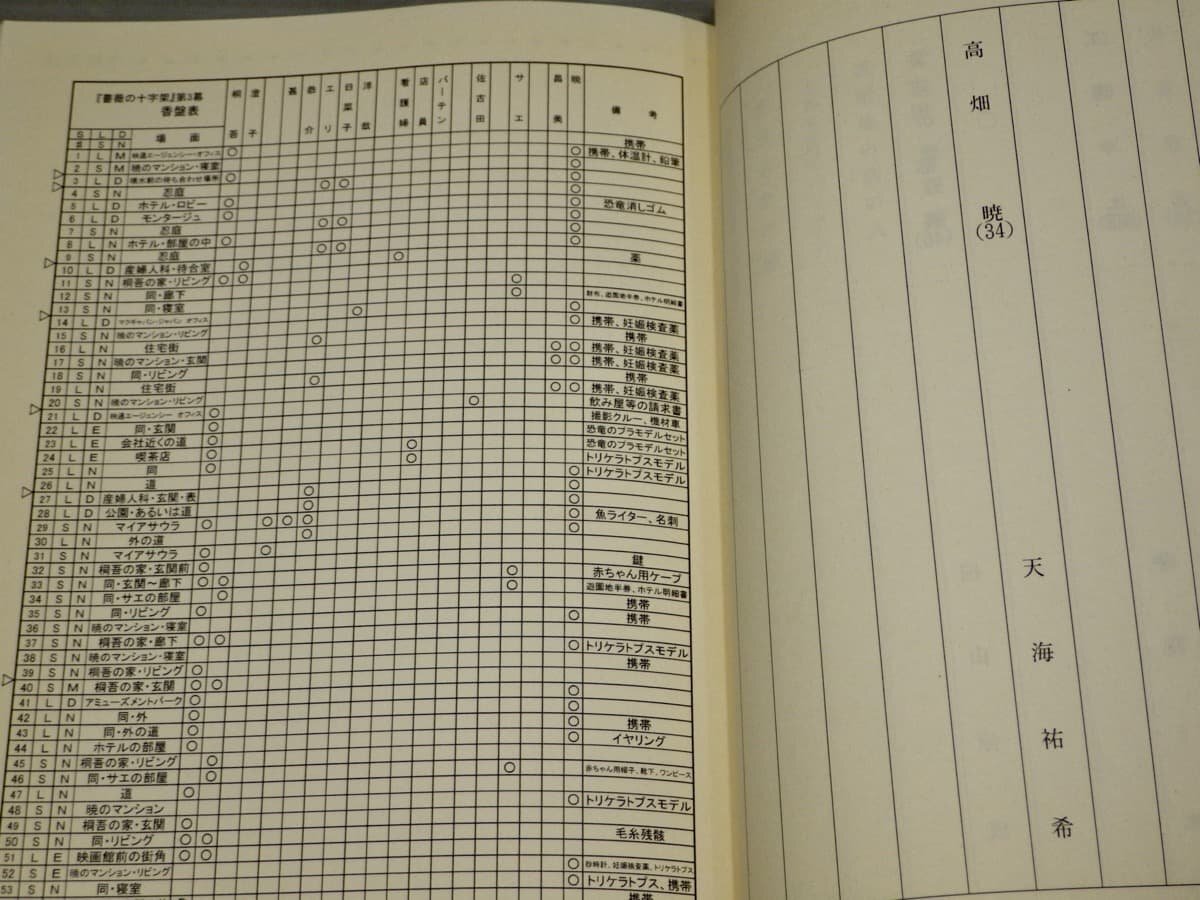 『薔薇の十字架』第3幕
香盤表
桐吾 澄子 甚 恭介 エリ 日菜子 洋哉 看護婦 店員 バーテン 佐古田 サエ 昌美 暁 備考
S# L S D N 場面
携帯
1 L M 映通エージェンシー・オフィス ○ ○ 携帯、体温計、鉛筆
2 S M 暁のマンション・寝室 ○
3 L D 噴水前の待ち合わせ場所 ○ ○
4 S N 忍庭 ○ ○ ○
5 L D ホテル・ロビー ○ ○ 恐竜消しゴム
6 L D モンタージュ ○ ○
7 S N 忍庭 ○ ○ ○
8 L N ホテル・部屋の中 ○ ○
9 S N 忍庭 ○ ○ 薬
10 L D 産婦人科・待合室 ○ ○
11 S N 桐吾の家・リビング ○ ○ ○
12 S N 同・廊下 ○ 財布、遊園地半券、ホテル明細書
13 S N 同・寝室 ○
14 L D マクギャバン・ジャパン オフィス ○ ○ 携帯、妊娠検査薬
15 S N 暁のマンション・リビング 携帯
16 L N 住宅街 ○ ○ ○ 携帯、妊娠検査薬
17 S N 暁のマンション・玄関 ○ ○ 携帯、妊娠検査薬
18 S N 同・リビング 携帯
19 L N 住宅街 ○ ○ ○ 携帯、妊娠検査薬
20 S N 暁のマンション・リビング ○ 飲み屋等の請求書
21 L D 映通エージェンシー オフィス ○ 撮影クルー、機材車
22 L E 同・玄関 ○ 恐竜のプラモデルセット
23 L E 会社近くの道 ○ ○ 恐竜のプラモデルセット
24 L E 喫茶店 ○ ○ トリケラトプスモデル
25 L N 同 ○ ○ トリケラトプスモデル
26 L N 道 ○
27 L D 産婦人科・玄関・表 ○ ○
28 L D 公園・あるいは道 ○ ○ 魚ライター、名刺
29 S N マイアサウラ ○ ○ ○ ○ ○
30 L N 外の道 ○
31 S N マイアサウラ ○ ○ 鍵
32 S N 桐吾の家・玄関前 ○ ○ 赤ちゃん用ケープ
33 S N 同・玄関～廊下 ○ ○ ○ 遊園地半券、ホテル明細書
34 S N 同・サエの部屋 ○ 携帯
35 S N 同・リビング ○ ○ 携帯
36 S N 暁のマンション・寝室
37 S N 桐吾の家・廊下 ○ ○ ○ トリケラトプスモデル
38 S N 暁のマンション・寝室 携帯
39 S N 桐吾の家・リビング ○
40 S M 桐吾の家・玄関 ○ ○ ○
41 L D アミューズメントパーク ○ ○
42 L N 同・外 ○ ○ 携帯
43 L N 同・外の道 ○ ○ イヤリング
44 L N ホテルの部屋 ○
45 S N 桐吾の家・リビング ○ ○ 赤ちゃん用帽子、靴下、ワンピース
46 S N 同・サエの部屋 ○
47 L N 道 ○ ○ トリケラトプスモデル
48 S N 暁のマンション
49 S N 桐吾の家・玄関 ○ 毛糸残骸
50 S N 同・リビング ○ ○
51 L E 映画館前の街角 ○ ○ ○ 砂時計、妊娠検査薬、トリケラトプス
52 S E 暁のマンション・リビング ○ トリケラトプス、携帯
53 S N 同・寝室 携帯
高畑 暁(34)
天海祐希